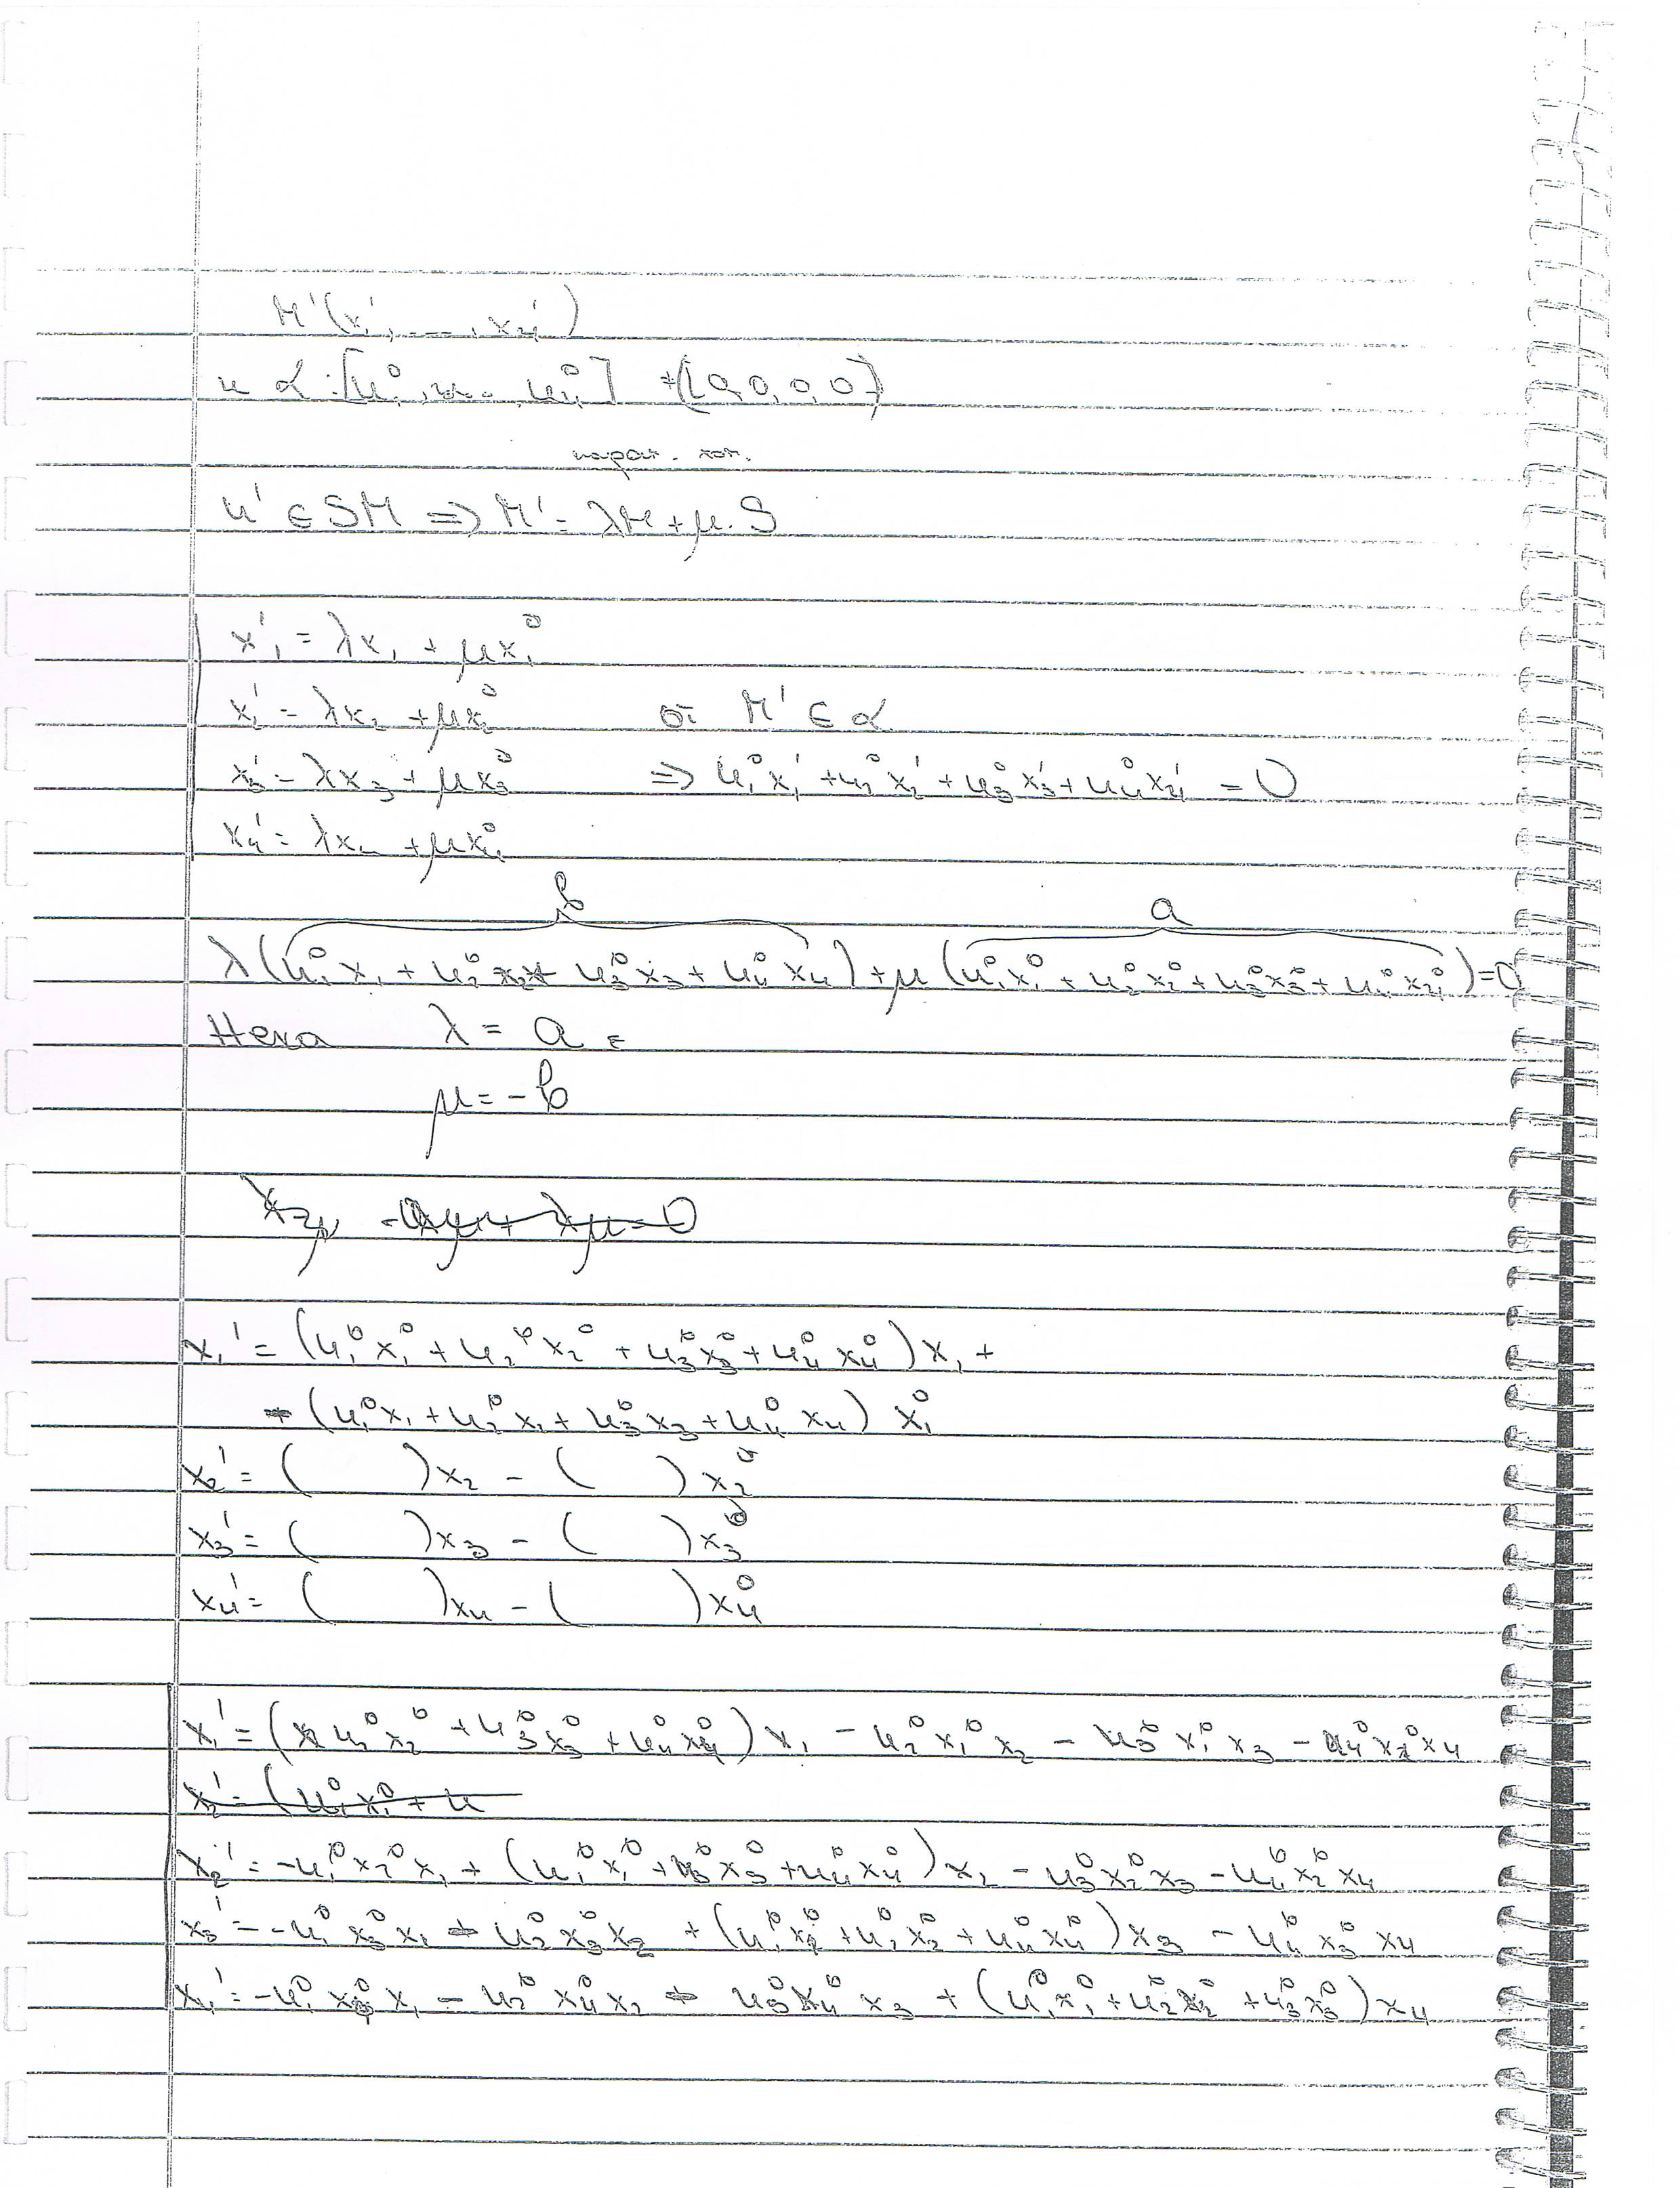 M'(x₁', ..., x₄')
и α:[u₁⁰, ..., u₄⁰] ≠ (0,0,0,0)
M' ∈ SM => M' = λM + μ.S
x₁' = λx₁ + μx₁⁰
x₂' = λx₂ + μx₂⁰ от M' ∈ α
x₃' = λx₃ + μx₃⁰ => u₁⁰x₁' + u₂⁰x₂' + u₃⁰x₃' + u₄⁰x₄' = 0
x₄' = λx₄ + μx₄⁰
b a
λ(u₁⁰x₁ + u₂⁰x₂ + u₃⁰x₃ + u₄⁰x₄) + μ(u₁⁰x₁⁰ + u₂⁰x₂⁰ + u₃⁰x₃⁰ + u₄⁰x₄⁰) = 0
Нека λ = a =
μ = -b
x₁' = (u₁⁰x₁⁰ + u₂⁰x₂⁰ + u₃⁰x₃⁰ + u₄⁰x₄⁰)x₁ +
- (u₁⁰x₁ + u₂⁰x₁ + u₃⁰x₃ + u₄⁰x₄) x₁⁰
x₂' = ( )x₂ - ( )x₂⁰
x₃' = ( )x₃ - ( )x₃⁰
x₄' = ( )x₄ - ( )x₄⁰
x₁' = (u₂⁰x₂⁰ + u₃⁰x₃⁰ + u₄⁰x₄⁰)x₁ - u₂⁰x₁⁰x₂ - u₃⁰x₁⁰x₃ - u₄⁰x₁⁰x₄
x₂' = (u₁⁰x₁⁰ + u
x₂' = -u₁⁰x₂⁰x₁ + (u₁⁰x₁⁰ + u₃⁰x₃⁰ + u₄⁰x₄⁰)x₂ - u₃⁰x₂⁰x₃ - u₄⁰x₂⁰x₄
x₃' = -u₁⁰x₃⁰x₁ - u₂⁰x₃⁰x₂ + (u₁⁰x₁⁰ + u₂⁰x₂⁰ + u₄⁰x₄⁰)x₃ - u₄⁰x₃⁰x₄
x₄' = -u₁⁰x₄⁰x₁ - u₂⁰x₄⁰x₂ - u₃⁰x₄⁰x₃ + (u₁⁰x₁⁰ + u₂⁰x₂⁰ + u₃⁰x₃⁰)x₄